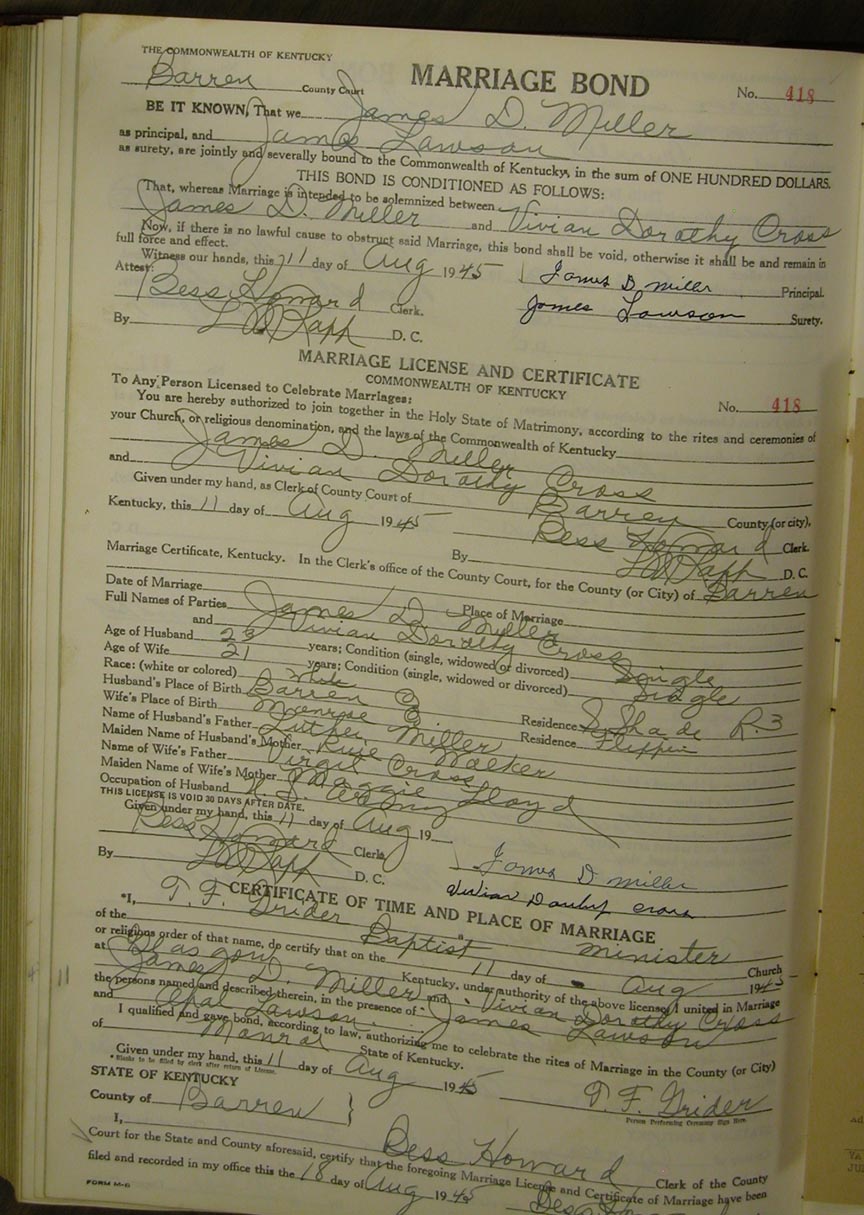 THE COMMONWEALTH OF KENTUCKY
Barren County Court MARRIAGE BOND No. 418
BE IT KNOWN, That we James D. Miller
as principal, and James Lawson
as surety, are jointly and severally bound to the Commonwealth of Kentucky, in the sum of ONE HUNDRED DOLLARS.
THIS BOND IS CONDITIONED AS FOLLOWS:
That, whereas Marriage is intended to be solemnized between
James D. Miller and Vivian Dorothy Cross
Now, if there is no lawful cause to obstruct said Marriage, this bond shall be void, otherwise it shall be and remain in
full force and effect.
Witness our hands, this 11 day of Aug 1945 James D. Miller Principal.
Attest:
Bess Howard Clerk. James Lawson Surety.
By D. C.
MARRIAGE LICENSE AND CERTIFICATE
COMMONWEALTH OF KENTUCKY
No. 418
To Any Person Licensed to Celebrate Marriages:
You are hereby authorized to join together in the Holy State of Matrimony, according to the rites and ceremonies of
your Church, or religious denomination, and the laws of the Commonwealth of Kentucky
James D. Miller
and Vivian Dorothy Cross
Given under my hand, as Clerk of County Court of Barren County (or city),
Kentucky, this 11 day of Aug 1945 Bess Howard Clerk.
By D. C.
Marriage Certificate, Kentucky. In the Clerk's office of the County Court, for the County (or City) of Barren
Date of Marriage Place of Marriage
Full Names of Parties James D. Miller
and Vivian Dorothy Cross
Age of Husband 23 years; Condition (single, widowed or divorced) Single
Age of Wife 21 years; Condition (single, widowed or divorced) Single
Race: (white or colored) White
Husband's Place of Birth Barren Co Residence S. Shade R.3
Wife's Place of Birth Monroe Co Residence Flippin
Name of Husband's Father Luther Miller
Maiden Name of Husband's Mother Walker
Name of Wife's Father Virgil Cross
Maiden Name of Wife's Mother Maggie Lloyd
Occupation of Husband U. S. Army
THIS LICENSE IS VOID 30 DAYS AFTER DATE.
Given under my hand, this 11 day of Aug 19
Bess Howard Clerk James D Miller
By D. C. Vivian Dorothy Cross
CERTIFICATE OF TIME AND PLACE OF MARRIAGE
*I, T. F. Grider a minister
of the Baptist Church
or religious order of that name, do certify that on the 11 day of Aug 1945
at Kentucky, under authority of the above license, I united in Marriage
James D. Miller and Vivian Dorothy Cross
the persons named and described therein, in the presence of James Lawson
and Opal Lawson
I qualified and gave bond, according to law, authorizing me to celebrate the rites of Marriage in the County (or City)
of Monroe State of Kentucky.
Given under my hand, this 11 day of Aug 1945 T. F. Grider
*Blanks to be filled by clerk after return of License. Person Performing Ceremony Sign Here.
STATE OF KENTUCKY
County of Barren
I, Bess Howard Clerk of the County
Court for the State and County aforesaid, certify that the foregoing Marriage License and Certificate of Marriage have been
filed and recorded in my office this the 18 day of Aug 1945
FORM M-6